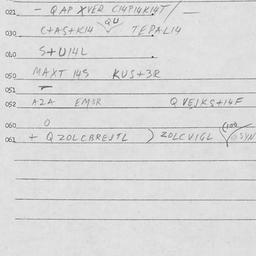 021 - QAP XVER C14P14K14T / —
QU
030 C+AS+K14 TEPAL14
040 S+U14L
050 MAXT 14S KUS+3R
051 -
052 A2A EM3R QVEJKS+14F
060 O
061 + QZOLCBREJTL ) ZOLCVIGL